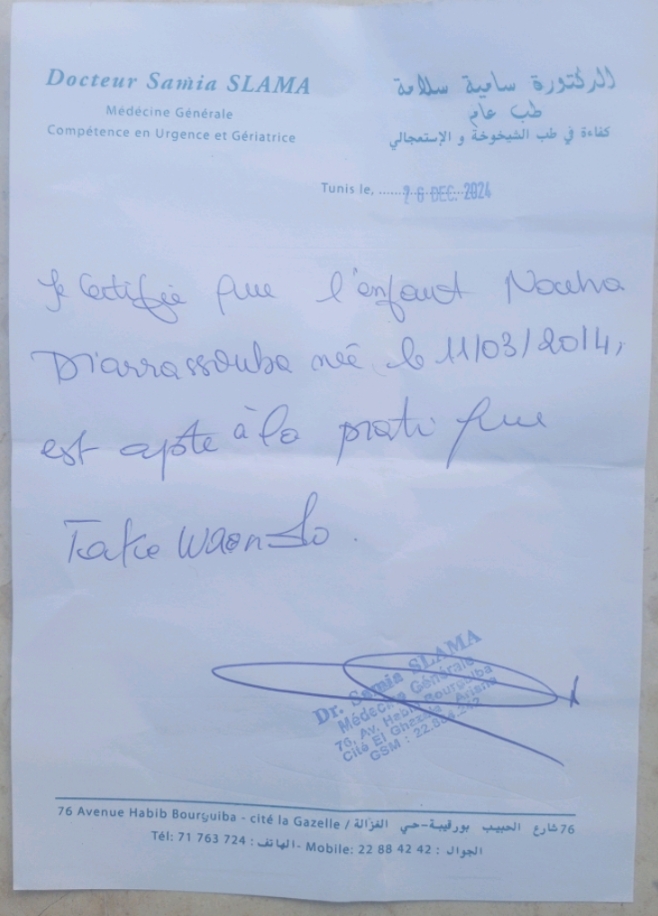 Docteur Samia SLAMA
Médécine Générale
Compétence en Urgence et Gériatrice
الدكتورة سامية سلامة
طب عام
كفاءة في طب الشيخوخة و الإستعجالي
Tunis le, ...... 26 DEC. 2024
Je certifie que l'enfant Nouha
Diarrassouba née le 11/03/2014,
est apte à la pratique
Take Waondo.
Dr. Samia SLAMA
Médecine Générale
76, Av. Habib Bourguiba
Cité El Ghazala - Ariana
GSM : 22.884.242
76 Avenue Habib Bourguiba - cité la Gazelle / 76 شارع الحبيب بورقيبة-حي الغزالة
Tél: 71 763 724 : الهاتف - Mobile: 22 88 42 42 : الجوال